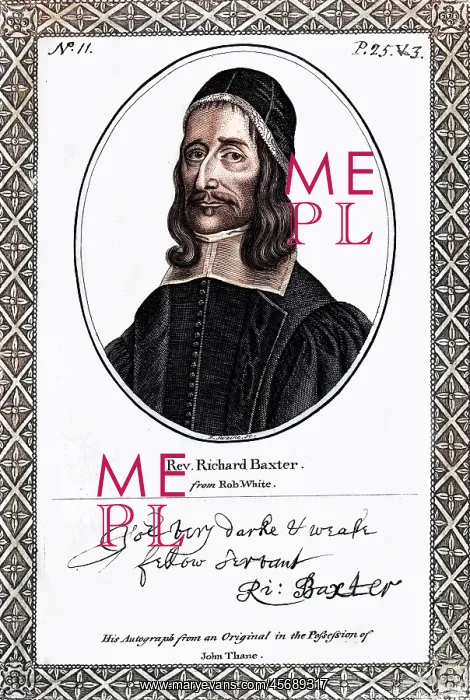 Nº. 11.
P. 25. V. 3.
ME
PL
Rev. Richard Baxter.
from Rob. White.
ME
PL
very darke & weake
fellow servant
Ri: Baxter
His Autograph from an Original in the Poſseſsion of
John Thane.
www.maryevans.com/45689317